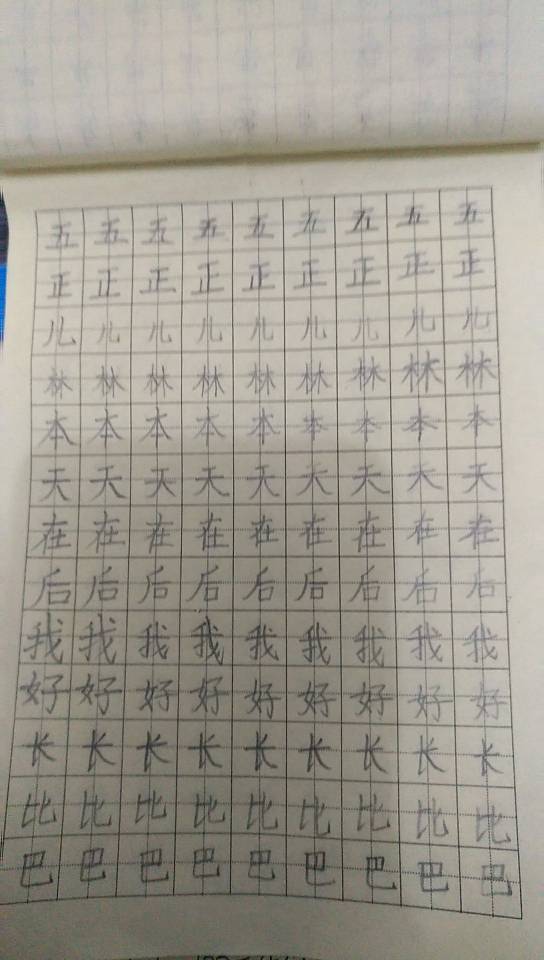 五五五五五五五五五
正正正正正正正正正
儿儿儿儿儿儿儿儿儿
林林林林林林林林林
本本本本本本本本本
天天天天天天天天天
在在在在在在在在在
后后后后后后后后后
我我我我我我我我我
好好好好好好好好好
长长长长长长长长长
比比比比比比比比比
巴巴巴巴巴巴巴巴巴